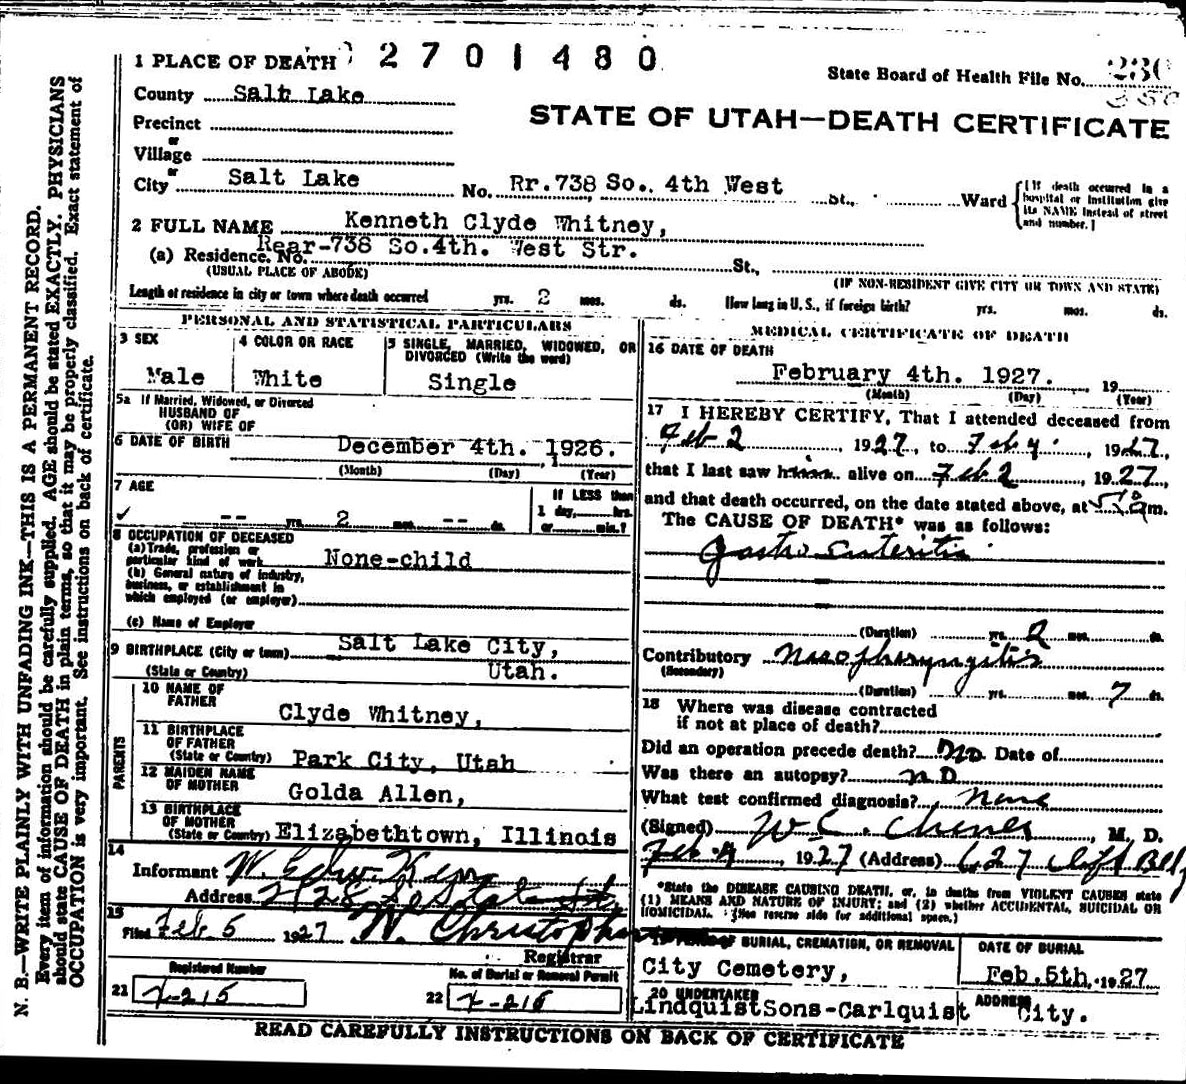 1 PLACE OF DEATH 2701480
State Board of Health File No. 230
County Salt Lake
STATE OF UTAH—DEATH CERTIFICATE
Precinct
or
Village
or
City Salt Lake No. Rr.738 So. 4th West St., Ward
{[If death occurred in a
hospital or institution give
its NAME instead of street
and number.]
2 FULL NAME Kenneth Clyde Whitney,
(a) Residence, No. Rear-738 So.4th. West Str. St.,
(USUAL PLACE OF ABODE) (IF NON-RESIDENT GIVE CITY OR TOWN AND STATE)
Length of residence in city or town where death occurred yrs. 2 mos. ds. How long in U. S., if foreign birth? yrs. mos. ds.
PERSONAL AND STATISTICAL PARTICULARS
3 SEX
Male
4 COLOR OR RACE
White
5 SINGLE, MARRIED, WIDOWED, OR
DIVORCED (Write the word)
Single
5a If Married, Widowed, or Divorced
HUSBAND OF
(OR) WIFE OF
6 DATE OF BIRTH December 4th. 1926.
(Month) (Day) (Year)
7 AGE
-- yrs. 2 mos. -- ds.
If LESS than
1 day, hrs.
or min.?
8 OCCUPATION OF DECEASED
(a) Trade, profession or
particular kind of work None-child
(b) General nature of industry,
business, or establishment in
which employed (or employer)
(c) Name of Employer
9 BIRTHPLACE (City or town) Salt Lake City,
(State or Country) Utah.
PARENTS
10 NAME OF
FATHER Clyde Whitney,
11 BIRTHPLACE
OF FATHER
(State or Country) Park City, Utah
12 MAIDEN NAME
OF MOTHER Golda Allen,
13 BIRTHPLACE
OF MOTHER
(State or Country) Elizabethtown, Illinois
14
Informant W.
Address
15
Filed Feb 5 1927 W. Christopherson
Registrar
Registered Number
21 X-215
No. of Burial or Removal Permit
22 X-215
MEDICAL CERTIFICATE OF DEATH
16 DATE OF DEATH
February 4th. 1927. 19
(Month) (Day) (Year)
17 I HEREBY CERTIFY, That I attended deceased from
Feb 2 1927, to Feb 4 1927,
that I last saw him alive on Feb 2 1927,
and that death occurred, on the date stated above, at m.
The CAUSE OF DEATH* was as follows:
Gastro Enteritis
(Duration) yrs. 2 mos. ds.
Contributory Nasopharyngitis
(Secondary)
(Duration) yrs. mos. 7 ds.
18 Where was disease contracted
if not at place of death?
Did an operation precede death? no. Date of
Was there an autopsy? no
What test confirmed diagnosis? None
(Signed) W. C. M. D.
Feb 4, 1927 (Address) 627 Clift Bldg
*State the DISEASE CAUSING DEATH, or, in deaths from VIOLENT CAUSES state
(1) MEANS AND NATURE OF INJURY; and (2) whether ACCIDENTAL, SUICIDAL OR
HOMICIDAL. (See reverse side for additional space.)
OF BURIAL, CREMATION, OR REMOVAL
City Cemetery,
DATE OF BURIAL
Feb.5th, 1927
20 UNDERTAKER
LindquistSons-Carlquist
ADDRESS
City.
READ CAREFULLY INSTRUCTIONS ON BACK OF CERTIFICATE
N. B.—WRITE PLAINLY WITH UNFADING INK—THIS IS A PERMANENT RECORD.
Every item of information should be carefully supplied. AGE should be stated EXACTLY. PHYSICIANS
should state CAUSE OF DEATH in plain terms, so that it may be properly classified. Exact statement of
OCCUPATION is very important. See instructions on back of certificate.